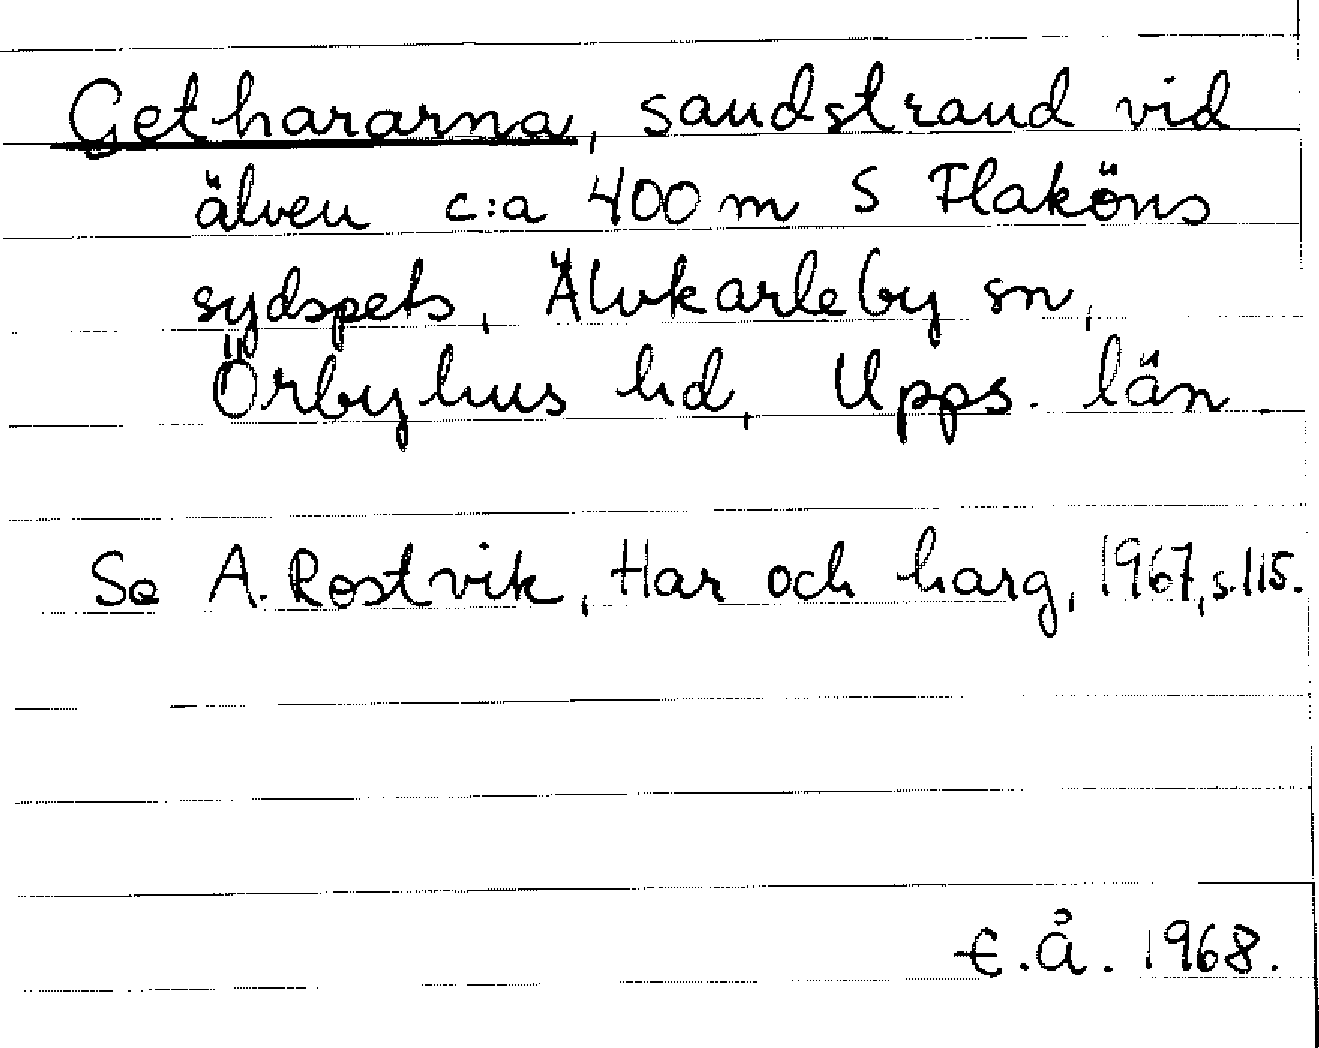 Gethararna, sandstrand vid
älven c:a 400 m S Flaköns
sydspets, Älvkarleby sn,
Örbyhus hd, Upps. län.
Se A. Rostvik, Har och harg, 1967, s. 115.
E.Å. 1968.